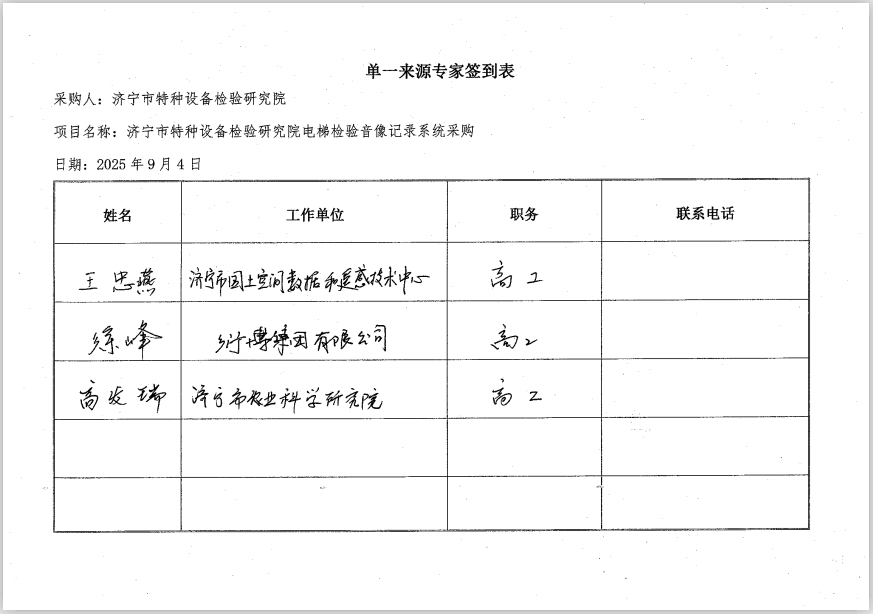 单一来源专家签到表
采购人：济宁市特种设备检验研究院
项目名称：济宁市特种设备检验研究院电梯检验音像记录系统采购
日期：2025 年 9 月 4 日
姓名 工作单位 职务 联系电话
王忠燕 济宁市国土空间数据和遥感技术中心 高工
峰 集团有限公司 高工
高发瑞 济宁市农业科学研究院 高工